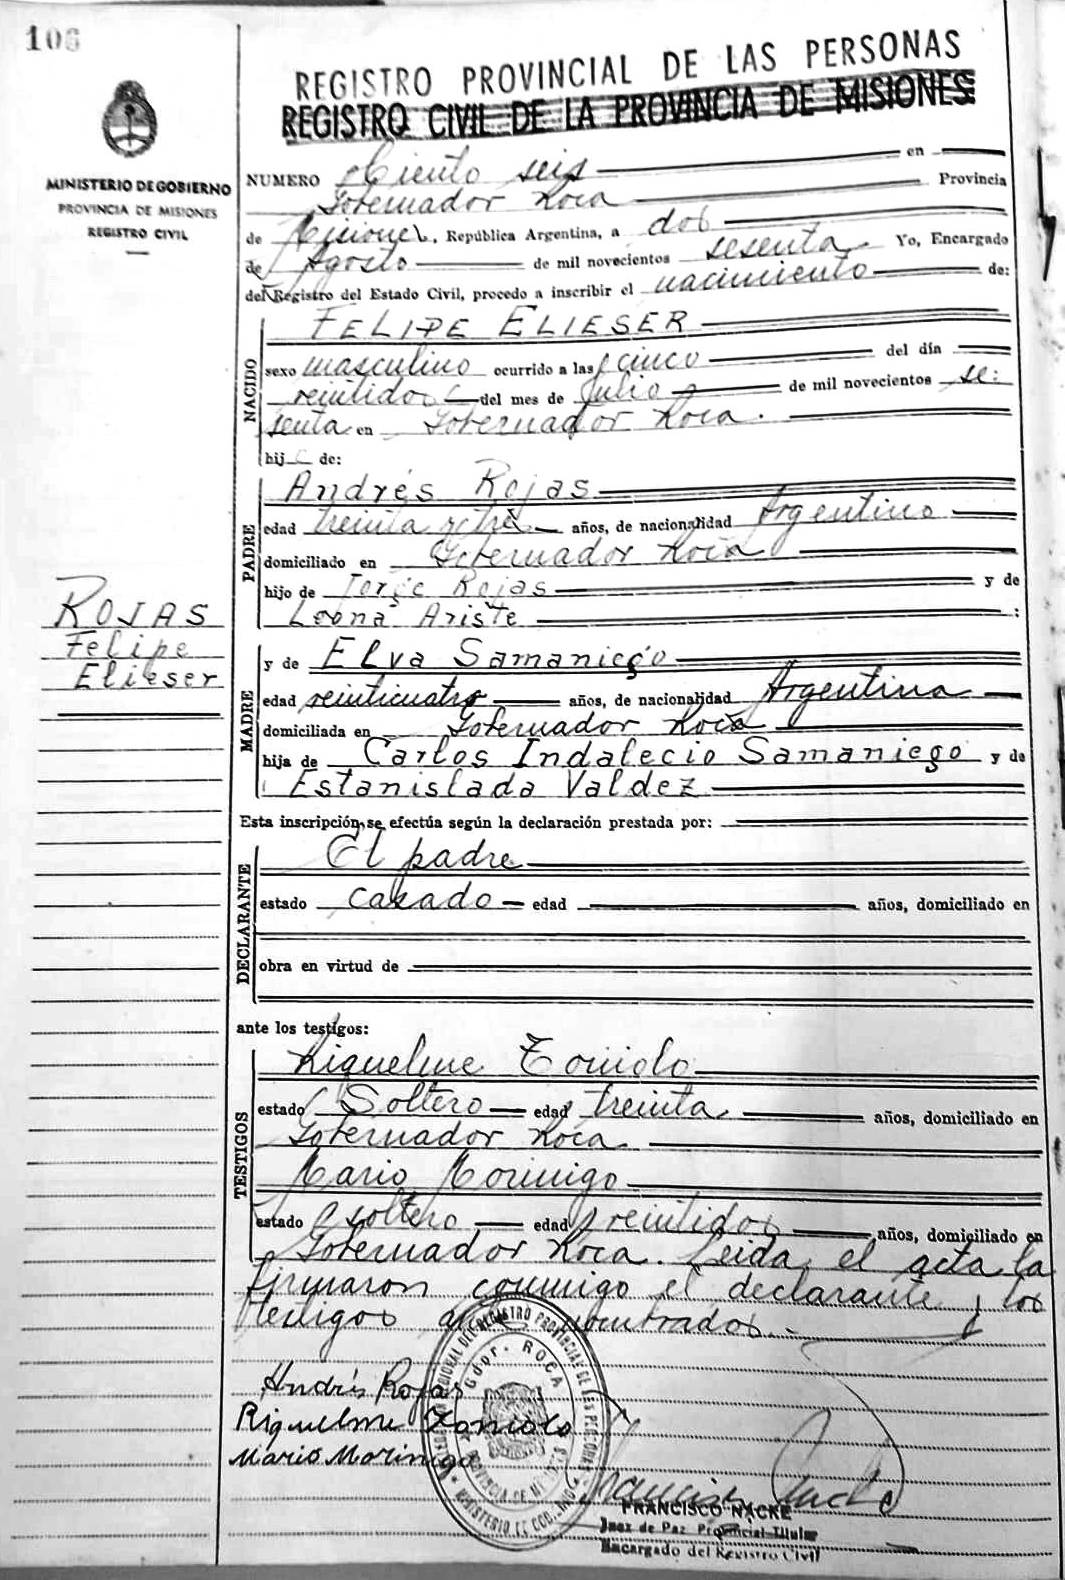 106
REGISTRO PROVINCIAL DE LAS PERSONAS
REGISTRO CIVIL DE LA PROVINCIA DE MISIONES
MINISTERIO DE GOBIERNO
PROVINCIA DE MISIONES
REGISTRO CIVIL
NUMERO Ciento seis en
Gobernador Roca Provincia
de Misiones, República Argentina, a dos
de Agosto de mil novecientos sesenta Yo, Encargado
del Registro del Estado Civil, procedo a inscribir el nacimiento de:
NACIDO
FELIPE ELIESER
sexo masculino ocurrido a las cinco del día
veintidos del mes de Julio de mil novecientos se:
senta en Gobernador Roca.
hijo de:
PADRE
Andrés Rojas
edad treinta y tres años, de nacionalidad Argentino
domiciliado en Gobernador Roca
hijo de Jorge Rojas y de
Leona Ariste :
ROJAS
Felipe
Elieser
MADRE
y de Elva Samaniego
edad veinticuatro años, de nacionalidad Argentina
domiciliada en Gobernador Roca
hija de Carlos Indalecio Samaniego y de
Estanislada Valdez
Esta inscripción se efectúa según la declaración prestada por:
DECLARANTE
El padre
estado casado edad años, domiciliado en
obra en virtud de
ante los testigos:
TESTIGOS
Riquelme Toniolo
estado Soltero edad treinta años, domiciliado en
Gobernador Roca
Mario Morinigo
estado soltero edad veintidos años, domiciliado en
Gobernador Roca. Leida el acta la
firmaron conmigo el declarante y los
testigos
Andrés Rojas
Riquelme Toniolo
Mario Morinigo
Gdor. ROCA
PROVINCIA DE MISIONES
FRANCISCO NACKE
Juez de Paz Provincial Titular
Encargado del Registro Civil